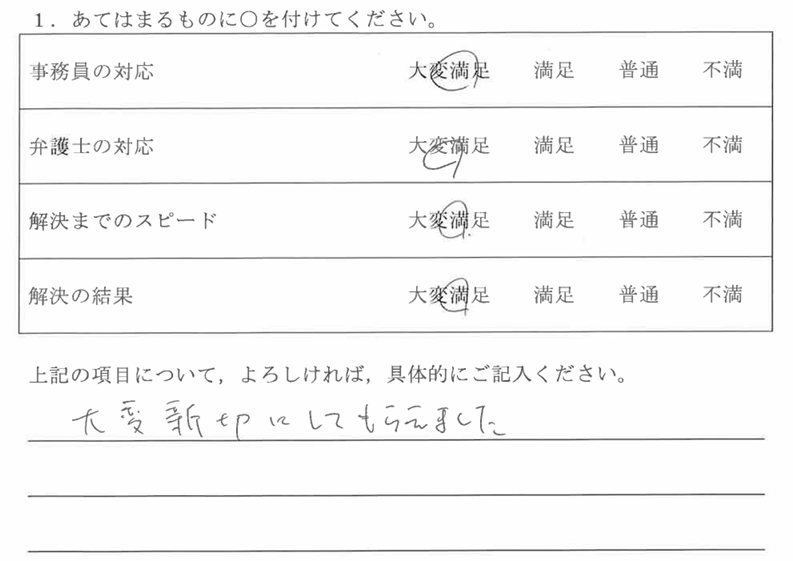 1．あてはまるものに○を付けてください。
事務員の対応 大変満足 満足 普通 不満
弁護士の対応 大変満足 満足 普通 不満
解決までのスピード 大変満足 満足 普通 不満
解決の結果 大変満足 満足 普通 不満
上記の項目について，よろしければ，具体的にご記入ください。
大変新切にしてもらえました